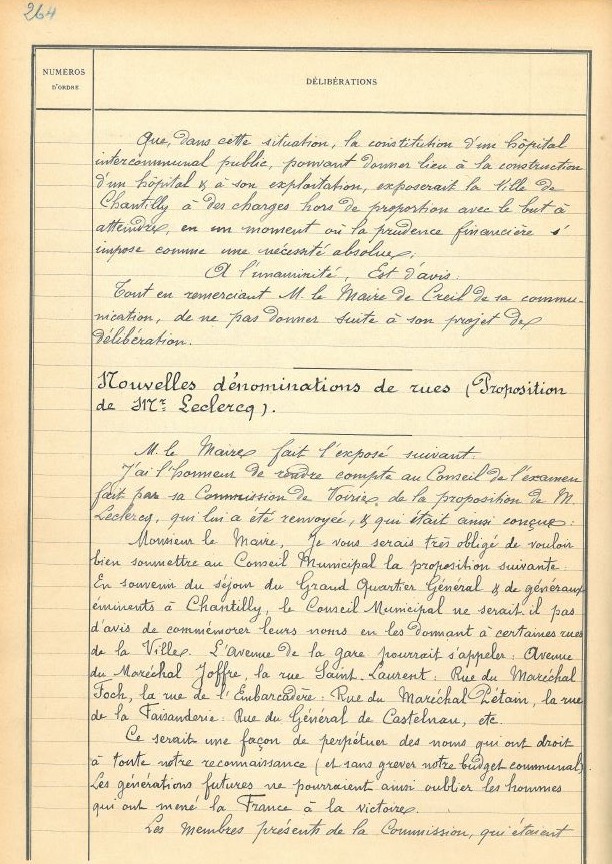 264
NUMÉROS
D'ORDRE
DÉLIBÉRATIONS
Que, dans cette situation, la constitution d'un hôpital
intercommunal public, pouvant donner lieu à la construction
d'un hôpital & à son exploitation, exposerait la Ville de
Chantilly à des charges hors de proportion avec le but à
attendre, en un moment où la prudence financière s'
impose comme une nécessité absolue;
A l'unanimité, Est d'avis:
Tout en remerciant M. le Maire de Creil de sa commu-
nication, de ne pas donner suite à son projet de
délibération.
Nouvelles dénominations de rues (Proposition
de Mr. Leclercq).
M. le Maire fait l'exposé suivant:
J'ai l'honneur de rendre compte au Conseil de l'examen
fait par sa Commission de Voirie, de la proposition de M.
Leclercq, qui lui a été renvoyée, & qui était ainsi conçue:
Monsieur le Maire, Je vous serais très obligé de vouloir
bien soumettre au Conseil Municipal la proposition suivante:
En souvenir du séjour du Grand Quartier Général & de généraux
éminents à Chantilly, le Conseil Municipal ne serait-il pas
d'avis de commémorer leurs noms en les donnant à certaines rues
de la Ville. L'avenue de la gare pourrait s'appeler: Avenue
du Maréchal Joffre, la rue Saint-Laurent: Rue du Maréchal
Foch, la rue de l'Embarcadère: Rue du Maréchal Pétain, la rue
de la Faisanderie: Rue du Général de Castelnau, etc
Ce serait une façon de perpétuer des noms qui ont droit
à toute notre reconnaissance (et sans grever notre budget communal).
Les générations futures ne pourraient ainsi oublier les hommes
qui ont mené la France à la victoire.
Les Membres présents de la Commission, qui étaient